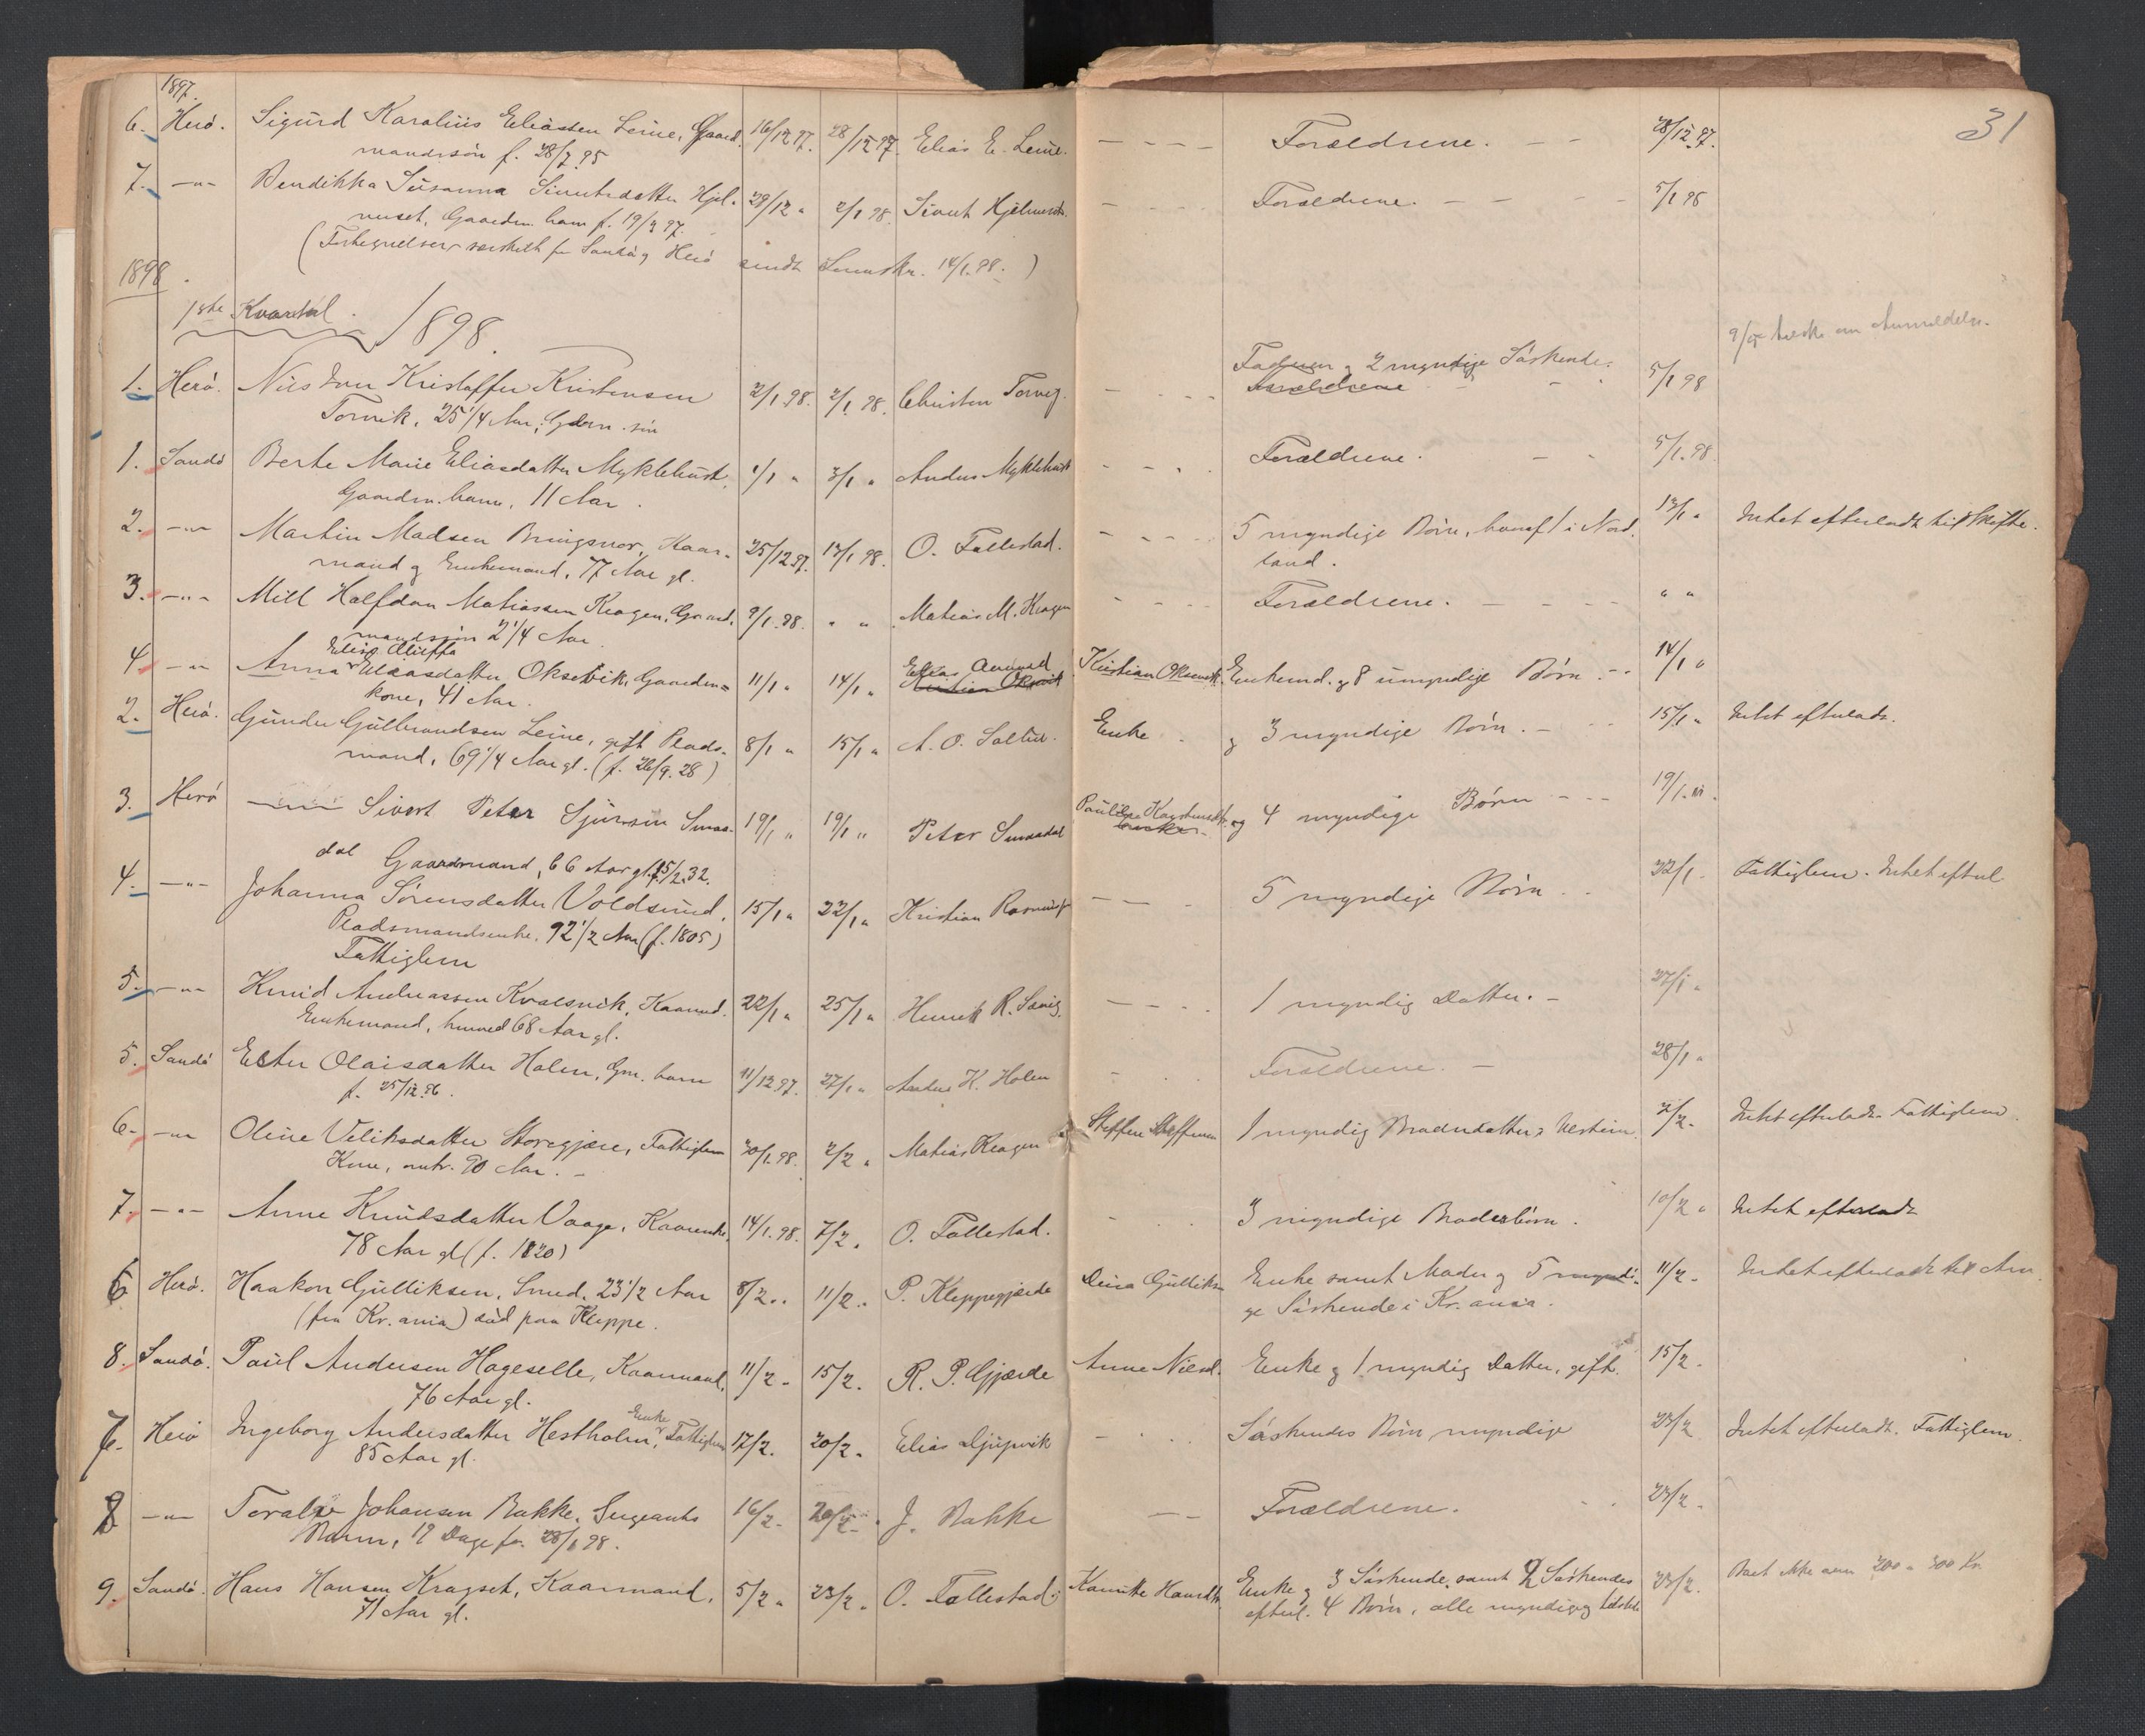 31
1897.
6. Herö. Sigurd Karolius Eliassen Leine, Gaard- 16/12 97. 28/12 97. Elias E. Leine. Forældrene. 28/12 97.
mandssön f. 28/7 95
7. —"— Bendikka Susanna Sivertsdatter Hjel- 29/12 " 2/1 98. Sivert Hjelmeset. Forældrene. 5/1 98
meset, Gaardm. barn f. 19/3 97.
(Fortegnelser særskilt for Sandö og Herö sendt Sorenskr. 14/1. 98.)
1898.
1ste Kvartal. 1898.
9/5 Anmeldelse.
1. Herö. Nils Kristoffer Kristensen 2/1 98. 2/1 98. Christen Torvig. Faderen og 2 myndige Söskende. 5/1 98
Torvik, 25 1/4 Aar, Gdm. sön Forældrene
1. Sandö Berte Marie Eliasdatter Myklebust, 1/1 " 3/1 " Anders Myklebust Forældrene. 5/1. 98.
Gaardm. barn, 11 Aar.
2. —"— Martin Madsen Bringsvor, Kaar- 25/12 97. 13/1 98. O. Fallestad. 5 myndige Börn, hvoraf 1 i Nord- 13/1 " Intet efterladt til Skifte.
mand og Enkemand, 77 Aar gl. land.
3. —"— Halfdan Matiassen Kragen, Gaard- 9/1. 98. " " Matias M. Kragen Forældrene. " "
mandssön 2 1/4 Aar
Elias Aamund
4. —"— Anna Eliasdatter Oksevik, Gaardm- 11/1 " 14/1 " Kristian Oksevik Kristian Oksevik. Enkemd. og 8 umyndige Börn. 14/1 "
kone, 41 Aar.
2. Herö. Gunder Gulbrandsen Leine, gift Plads- 8/1 " 15/1 " A. O. Enke og 3 myndige Börn. 15/1 " Intet efterladt.
mand, 69 1/4 Aar gl. (f. 26/9. 28)
3. Herö —"— Sivert Peter Sjursen Smaa- 19/1 " 19/1 " Peter Smaadal Pauline og 4 myndige Börn 19/1. "
dal Gaardmand, 66 Aar gl. f. 5/2. 32.
4. —"— Johanna Sörensdatter Voldsund, 15/1 " 22/1 " Kristian 5 myndige Börn 22/1 Fattiglem. Intet efterl
Pladsmandsenke, 92 1/2 Aar (f. 1805)
Fattiglem
5. —"— Knud Andreassen Kvalsvik, Kaarmd. 22/1 " 25/1 " Henrik R. 1 myndig Datter. 27/1 "
Enkemand, henved 68 Aar gl.
5. Sandö Ester Olaisdatter Holen, Gm. barn 11/12 97. 27/1 " Andreas K. Holen Forældrene. 28/1 "
f. 25/12. 96.
6. —"— Oline Storegjære, Fattiglem 30/1. 98. 2/2 " Matias Kragen Steffen Steffensen 1 myndig Broderdatter 2/2 - Intet efterladt. Fattiglem.
Kone, omtr. 90 Aar.
7. —"— Anne Knudsdatter Vaage, Kaarenke, 14/1. 98. 7/2 " O. Fallestad. 3 myndige Broderbörn. 10/2 " Intet efterladt
78 Aar gl (f. 1820)
6 Herö. Haakon Gulliksen, Smed, 23 1/2 Aar 8/2 " 11/2 " P. Kleppegjærde Dina Gulliksen Enke samt Moder og 5 myndi- 11/2 - Intet efterladt
(fra Kr.ania) död paa Kleppe. ge Söskende i Kr.ania.
8. Sandö. Paul Andersen Hageselle, Kaarmand, 11/2 - 15/2. R. P. Gjærde Anne Nilsd. Enke og 1 myndig Datter, gift. 15/2 -
76 Aar gl.
7. Herö Ingeborg Andersdatter Hestholm, Enke Fattiglem 17/2. 20/2. Elias Djupvik Söskendes Börn myndige 23/2 Intet efterladt. Fattiglem.
85 Aar gl.
8 —"— Johansen Bakke, Sergeants 16/2 - 20/2 - J. Bakke Forældrene. 23/2 -
Barn, 19 Dage f. 28/1 98.
9. Sandö. Hans Hansen Kragset, Kaarmand, 5/2 " 23/2 " O. Fallestad. Hansdtr. Enke og 3 Söskende, samt 2 Söskendes 23/2. Boet ikke over 200 a 300 Kr.
71 Aar gl. efterl. 4 Börn, alle myndige og